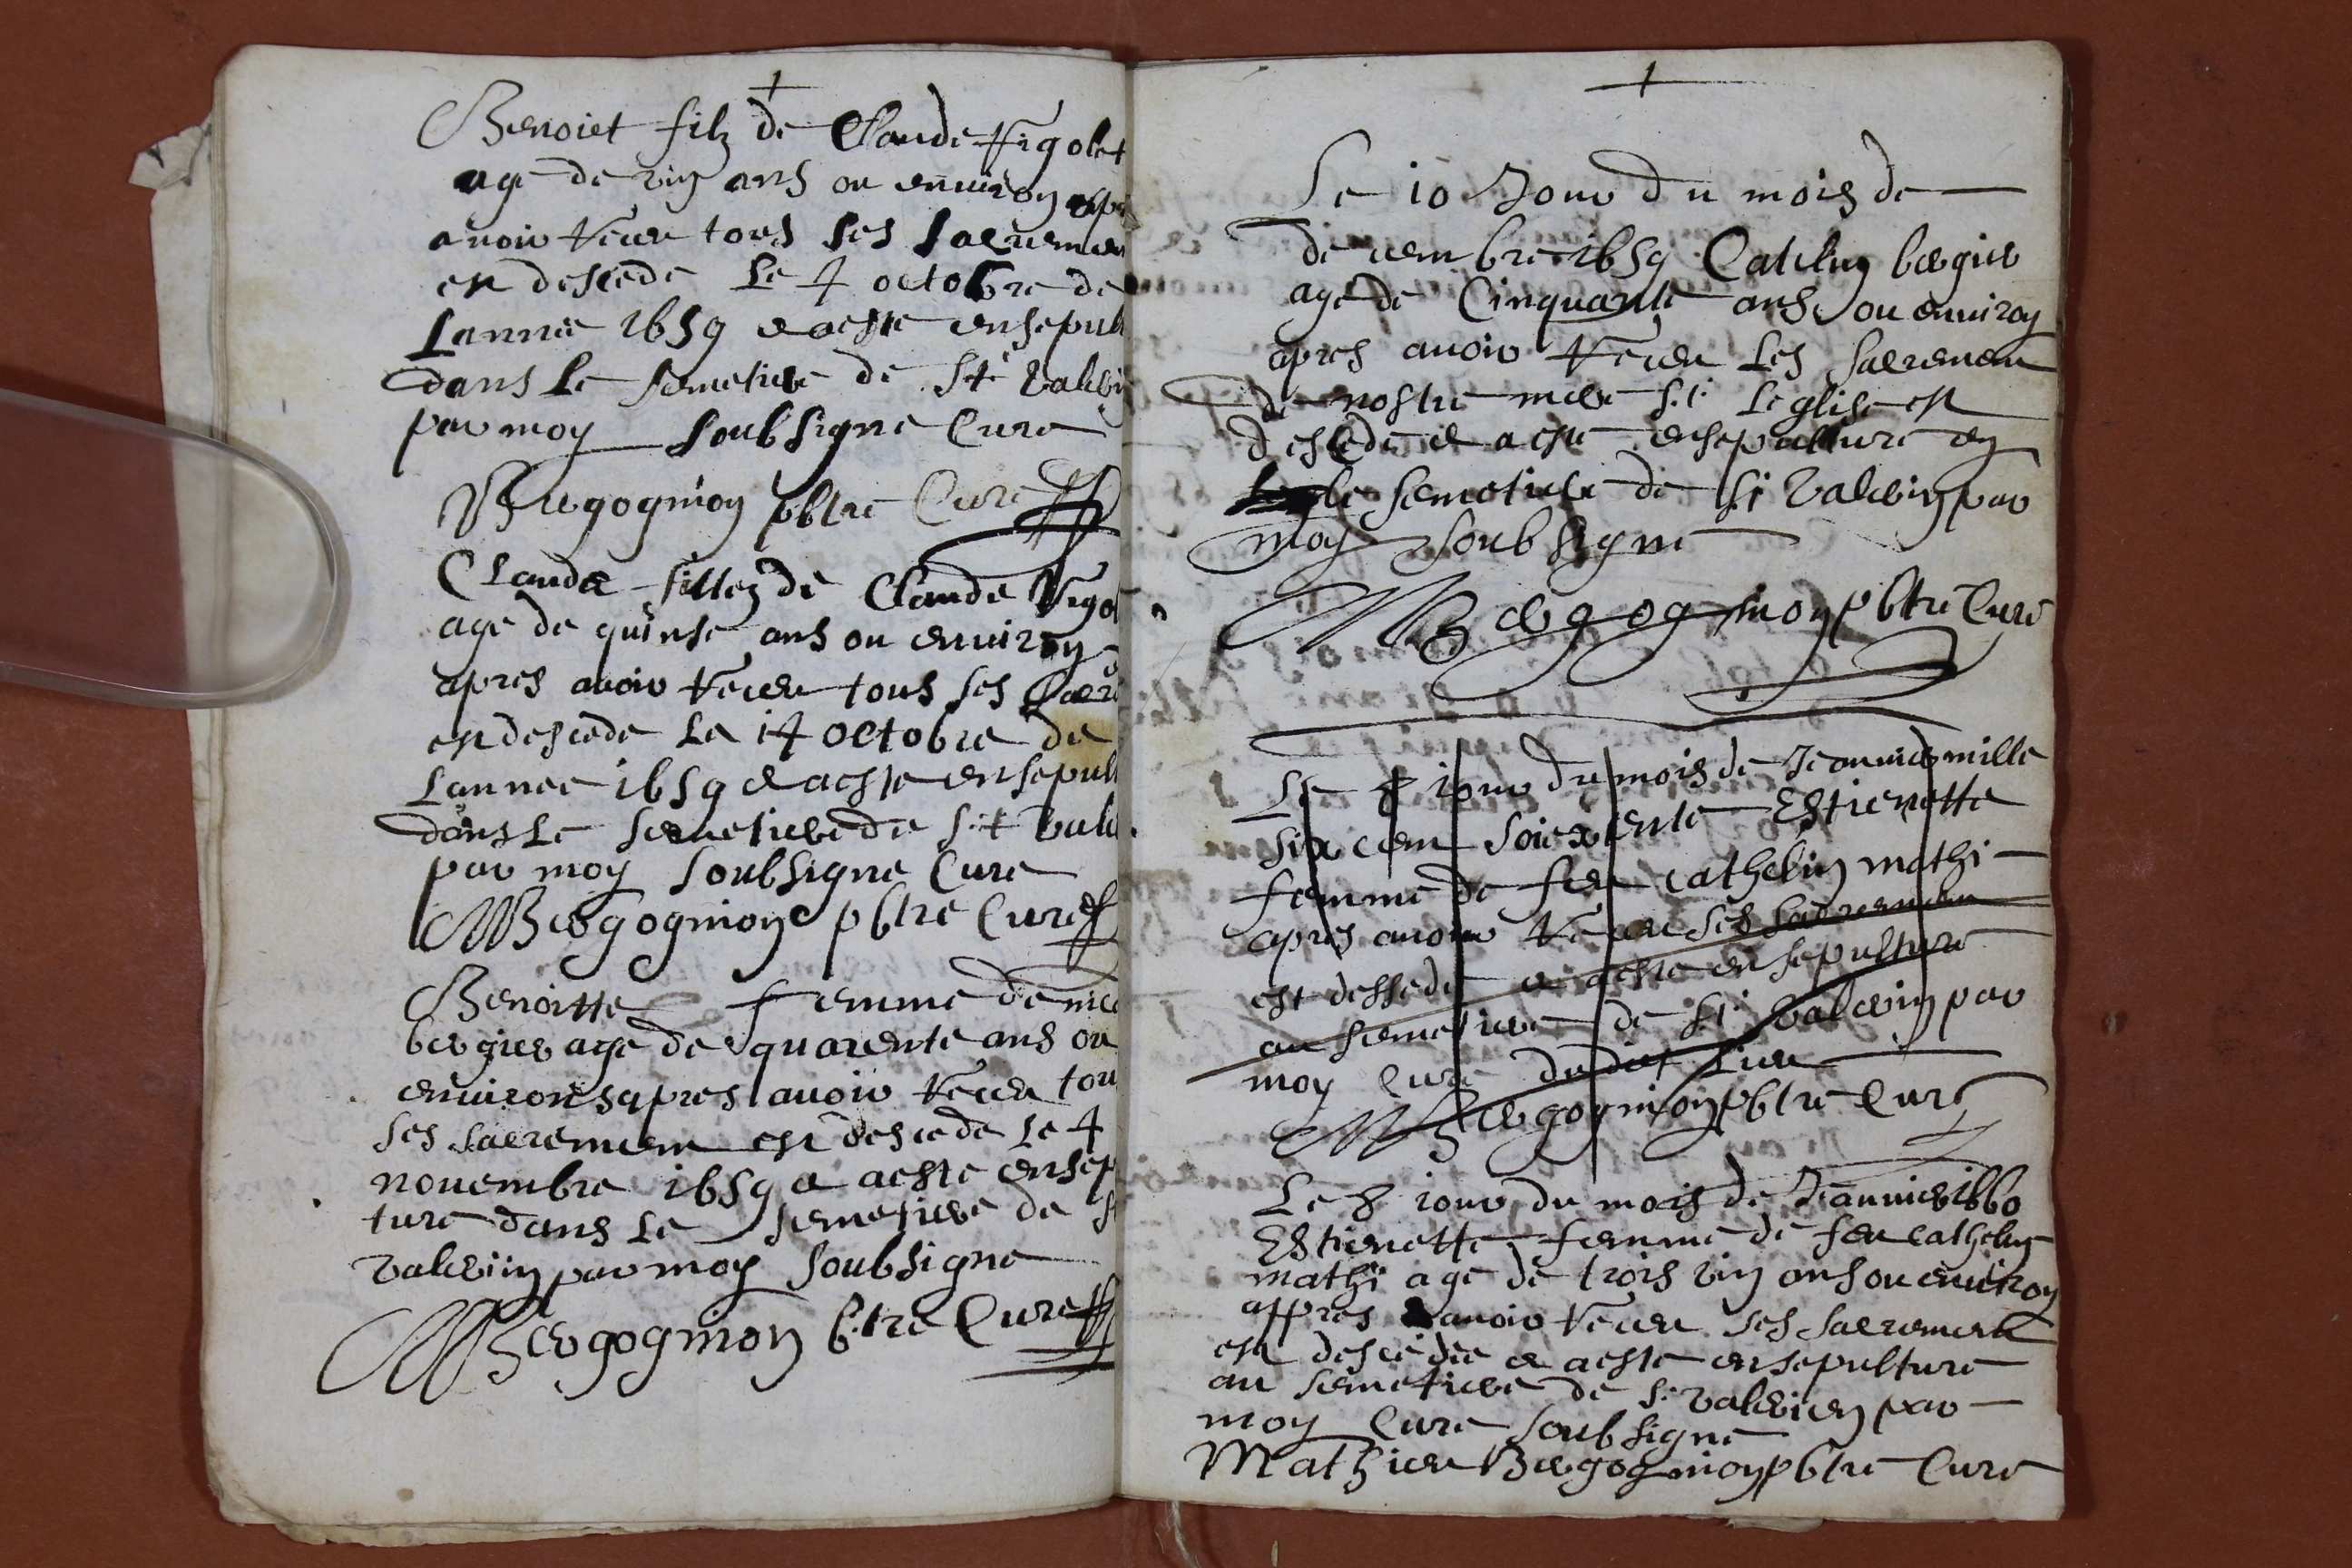 Benoiet filz de Claude Rigolet
age de vin ans ou enuiron apr
auoir receu tous ses sacremen
est descede le 4 octobre de
lannee 1659 e a este ensepult
dans le semetiere de St Valeri
par moy soubsigne Cure
MBergognion pbtre Cure
Claude filles de Claude Rigol
age de quinse ans ou enuiron
apres auoir receu tous ses sacr
est descede le 14 octobre de
lannee 1659 e a este ensepult
dans le semetiere de St Vale
par moy soubsigne Cure
MBergognion pbtre Cure
Benoitte femme de
bergier age de quarente ans ou
enuirons apres auoir receu tou
ses sacremen est descede le 4
nouembre 1659 e a este ensep
ture dans le semetiere de S
valeriin par moy soubsigne
MBergognion btre Cure
Le 10 Jour du mois de
decembre 1659 Catelin bergier
age de Cinquante ans ou enuiron
apres auoir receu les sacremen
de nostre mere ste Leglise est
descede e a este ensepulture en
le semetiere de st Valerin par
moy soubsigne
MBergognion pbtre Cure
Le 8 iour du mois de Jeanuier mille
six cent soiexente Estienette
femme de feu cathelin mathi
apres auoir receu ses sacremen
est dessede e a este ensepulture
au semetiere de st valerin par
moy Cure dudict lieu
MBergognion pbtre Cure
Le 8 iour du mois de Jeanuier 1660
Estienette femme de feu cathelin
mathi age de trois vin ans ou enuiron
appres auoir receu ses sacremens
est descedee e a este ensepulture
au semetiere de st valerien par
moy Cure soubsigne
Mathieu Bergognion pbtre Cure